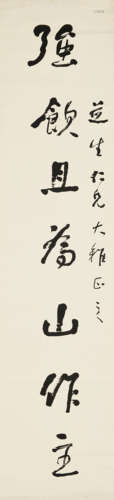 益生仁兄大雅正之
強飲且為山作主